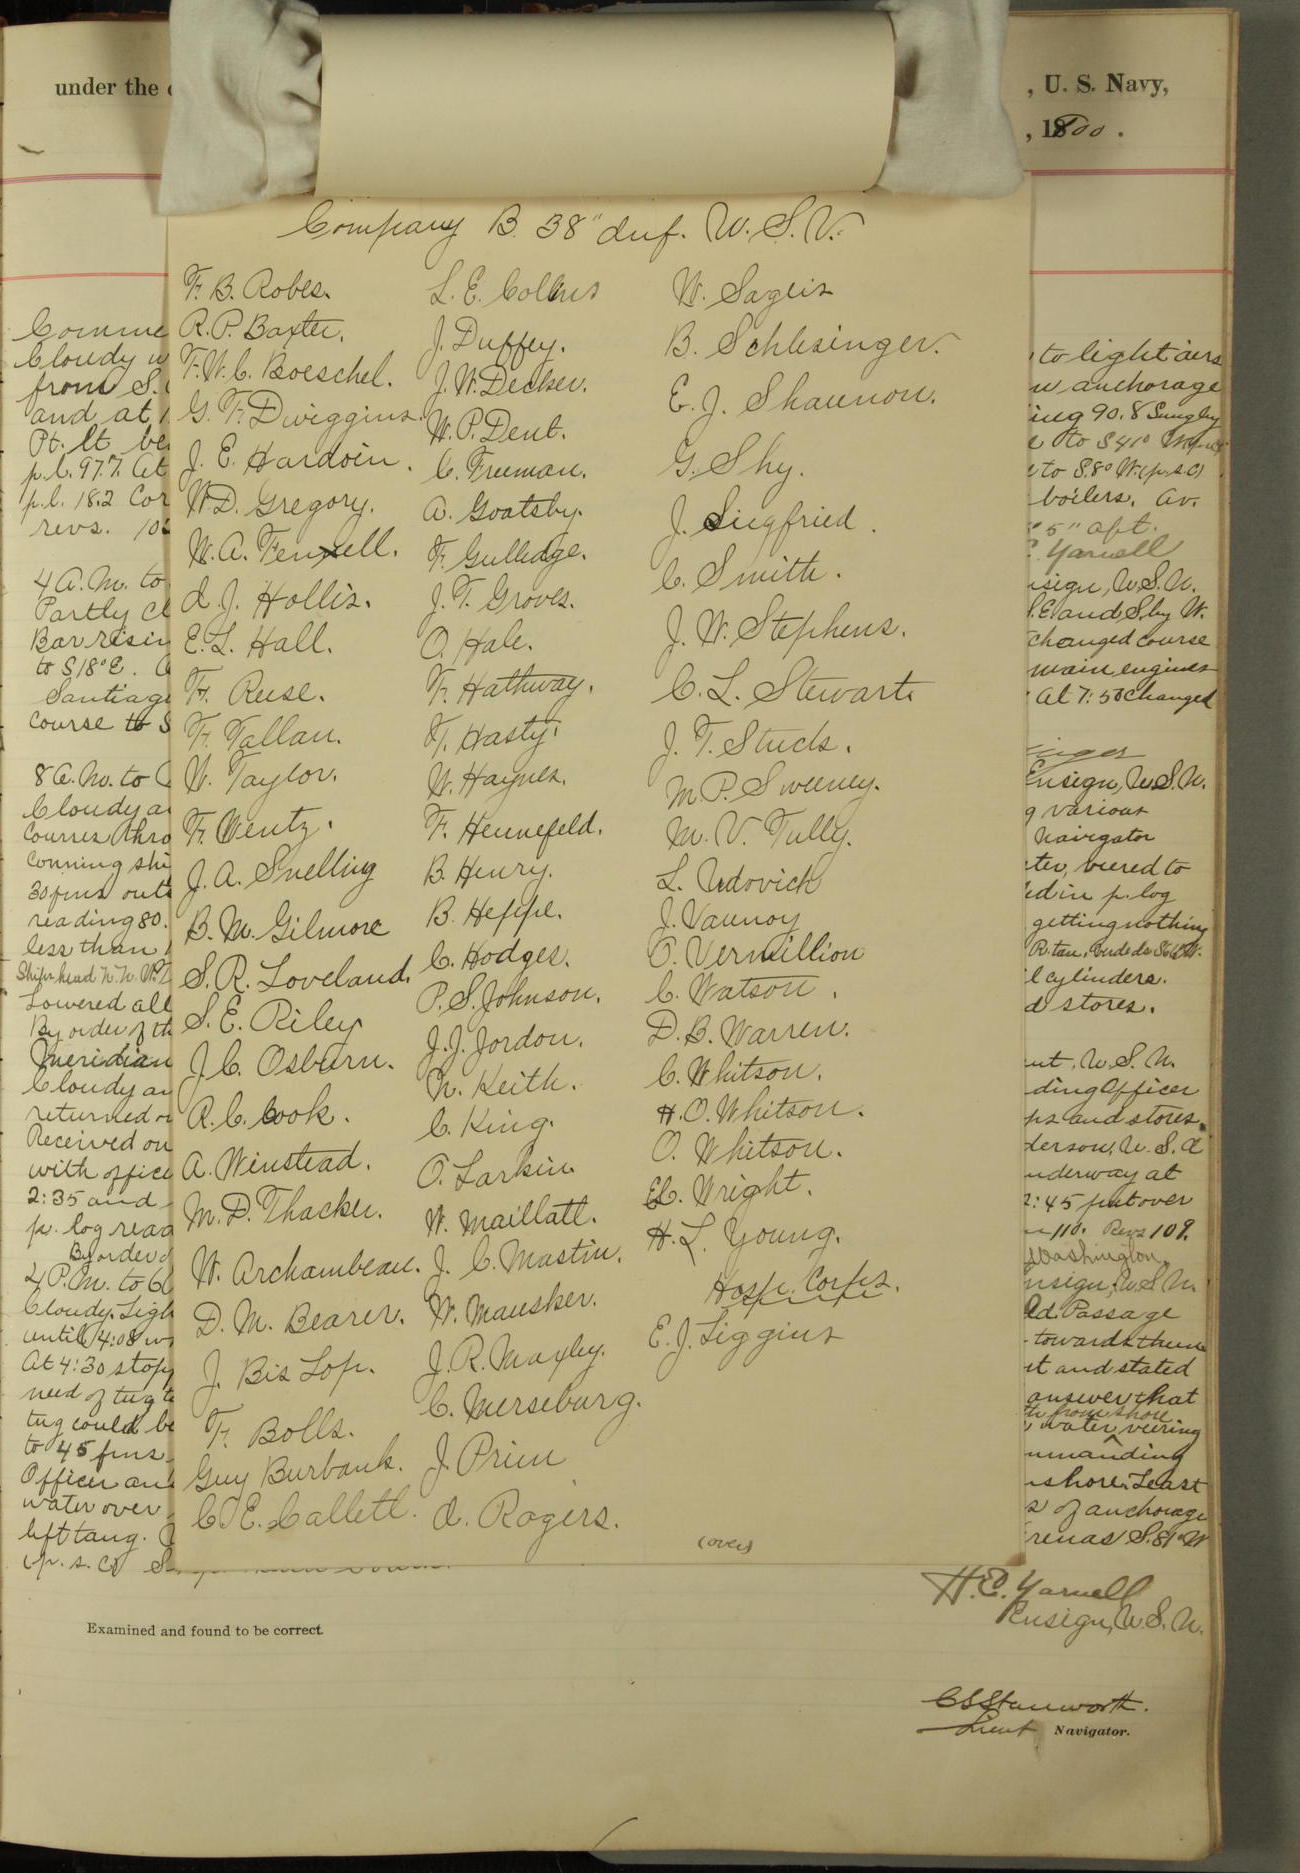 under the
, U. S. Navy,
, 1800.
Company B. 38" Inf. U. S. V.
F. B. Robes.
R. P. Baxter.
F. W. C. Boeschel.
G. F. Dwiggins.
J. E. Hardoin.
W. D. Gregory.
W. A. Fennell.
I. J. Hollis.
E. L. Hall.
F. Reese.
F. Tallan.
W. Taylor.
F. Wentz.
J. A. Snelling
B. M. Gilmore
S. R. Loveland.
S. E. Riley
J. C. Osburn.
R. C. Cook.
A. Winstead.
M. D. Thacker.
W. Archambeau.
D. M. Bearer.
J. Bis Lop.
F. Bolls.
Guy Burbank.
C. E. Callett.
L. E. Collins
J. Duffey.
J. W. Decker.
W. P. Dent.
C. Freeman.
A. Goatsby.
F. Gulledge.
J. T. Groves.
O. Hale.
F. Hathway.
T. Hasty.
W. Haynes.
F. Hennefeld.
B. Henry.
B. Heppe.
C. Hodges.
P. S. Johnson.
J. J. Jordon.
N. Keith.
C. King.
O. Larkin
W. Maillatt.
J. C. Mastin.
W. Mausker.
J. R. Maxley.
C. Merseburg.
J. Prim
I. Rogers.
W. Sageis
B. Schlesinger.
E. J. Shannon.
G. Shy.
J. Siegfried.
C. Smith.
J. W. Stephens.
C. L. Stewart.
J. T. Stuck.
M. P. Sweeney.
M. V. Tully.
L. Udovich
J. Vannoy
O. Vermillion
C. Watson.
D. B. Warren.
C. Whitson.
H. O. Whitson.
O. Whitson.
E. C. Wright.
H. L. Young.
Hosp. Corps.
E. J. Liggins
(over)
Comme
Cloudy w
from S.
and at
Pt. Lt be
p.l. 97.7. At
p.l. 18.2 Cor
revs. 10
4 A.M. to
Partly cl
Bar risin
to S18°E.
Santiago
course to S
8 A.M. to
Cloudy a
courses thro
conning shi
30 fms out
reading 80.
less than
Lowered all
By order of th
Meridian
Cloudy an
returned
Received on
with office
2:35 and
p. log read
By order
4 P.M. to 6
Cloudy. Ligh
until 4:08 w
At 4:30 stop
need of tug t
tug could be
to 45 fms
Officer an
water over
left tang.
(p. s. c)
to light airs
w anchorage
to S.8°W. (p.s.c)
boilers. Av.
5" aft.
Yarnell
nsign, U.S.N.
S.E and S. by W.
changed course
main engines
At 7:50 changed
Ensign, U.S.N.
g various
Navigator
ter, veered to
ed in p. log
getting nothing
l cylinders.
d stores.
nt, U. S. N.
ding Officer
ps and stores.
derson, U. S. A
nderway at
2:45 put over
110. Revs 109.
Washington
nsign, U.S.N.
Passage
towards them
it and stated
answer that
from shore
water veering
mmanding
shore. Least
s of anchorage
renas S.81°W
H. E. Yarnell
Ensign, U. S. N.
Examined and found to be correct.
C S Stanworth.
Lieut Navigator.